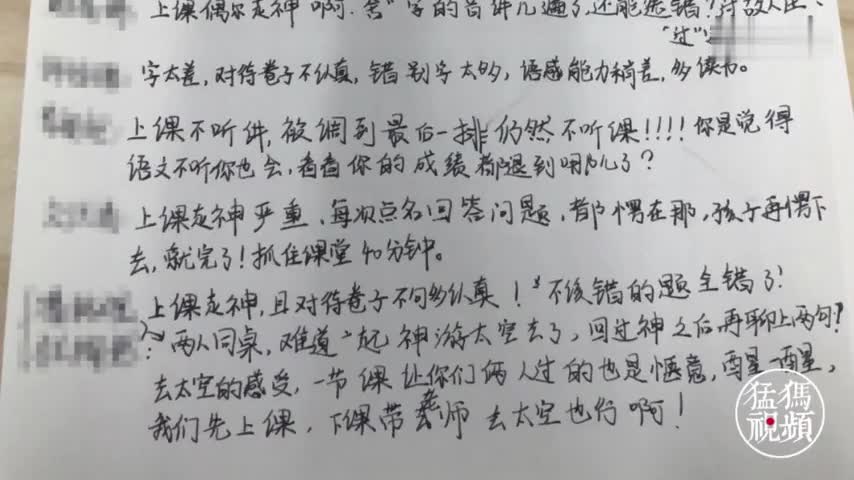 上课偶尔走神啊.含"字的音讲几遍了,还能选错?
"过"
字太差,对待卷子不认真,错别字太多,语感能力稍差,多读书。
上课不听讲,被调到最后一排仍然不听课!!!!你是说得
语文不听你也会,看看你的成绩都退到哪儿了?
上课走神严重、每次点名回答问题,都愣在那,孩子再愣下
去,就完了!抓住课堂40分钟。
上课走神,且对待卷子不够认真!不该错的题全错了!
两人同桌,难道一起神游太空去了,回过神之后再聊上两句?
去太空的感受,一节课让你们俩人过的也是惬意,醒一醒,
我们先上课,下课带老师去太空也行啊!
猛犸视頻